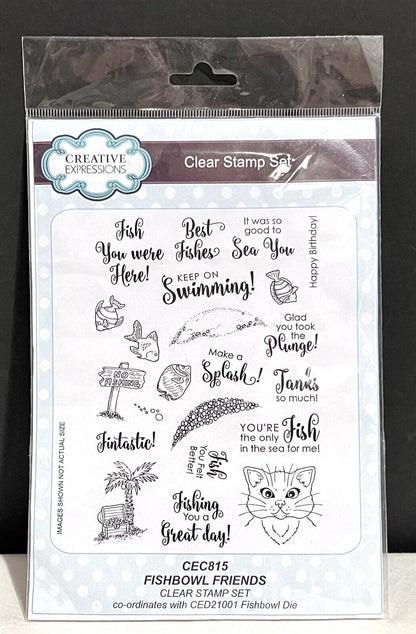 CREATIVE
EXPRESSIONS
Clear Stamp Set
Fish
You were
Here!
Best
Fishes
It was so
good to
Sea You
Happy Birthday!
KEEP ON
Swimming!
Glad
you took
the
Plunge!
Make a
Splash!
NO
FISHING
Tanks
so much!
Fintastic!
Fish
You Felt
Better!
YOU'RE
the only Fish
in the sea for me!
Fishing
You a
Great day!
IMAGES SHOWN NOT ACTUAL SIZE
CEC815
FISHBOWL FRIENDS
CLEAR STAMP SET
co-ordinates with CED21001 Fishbowl Die